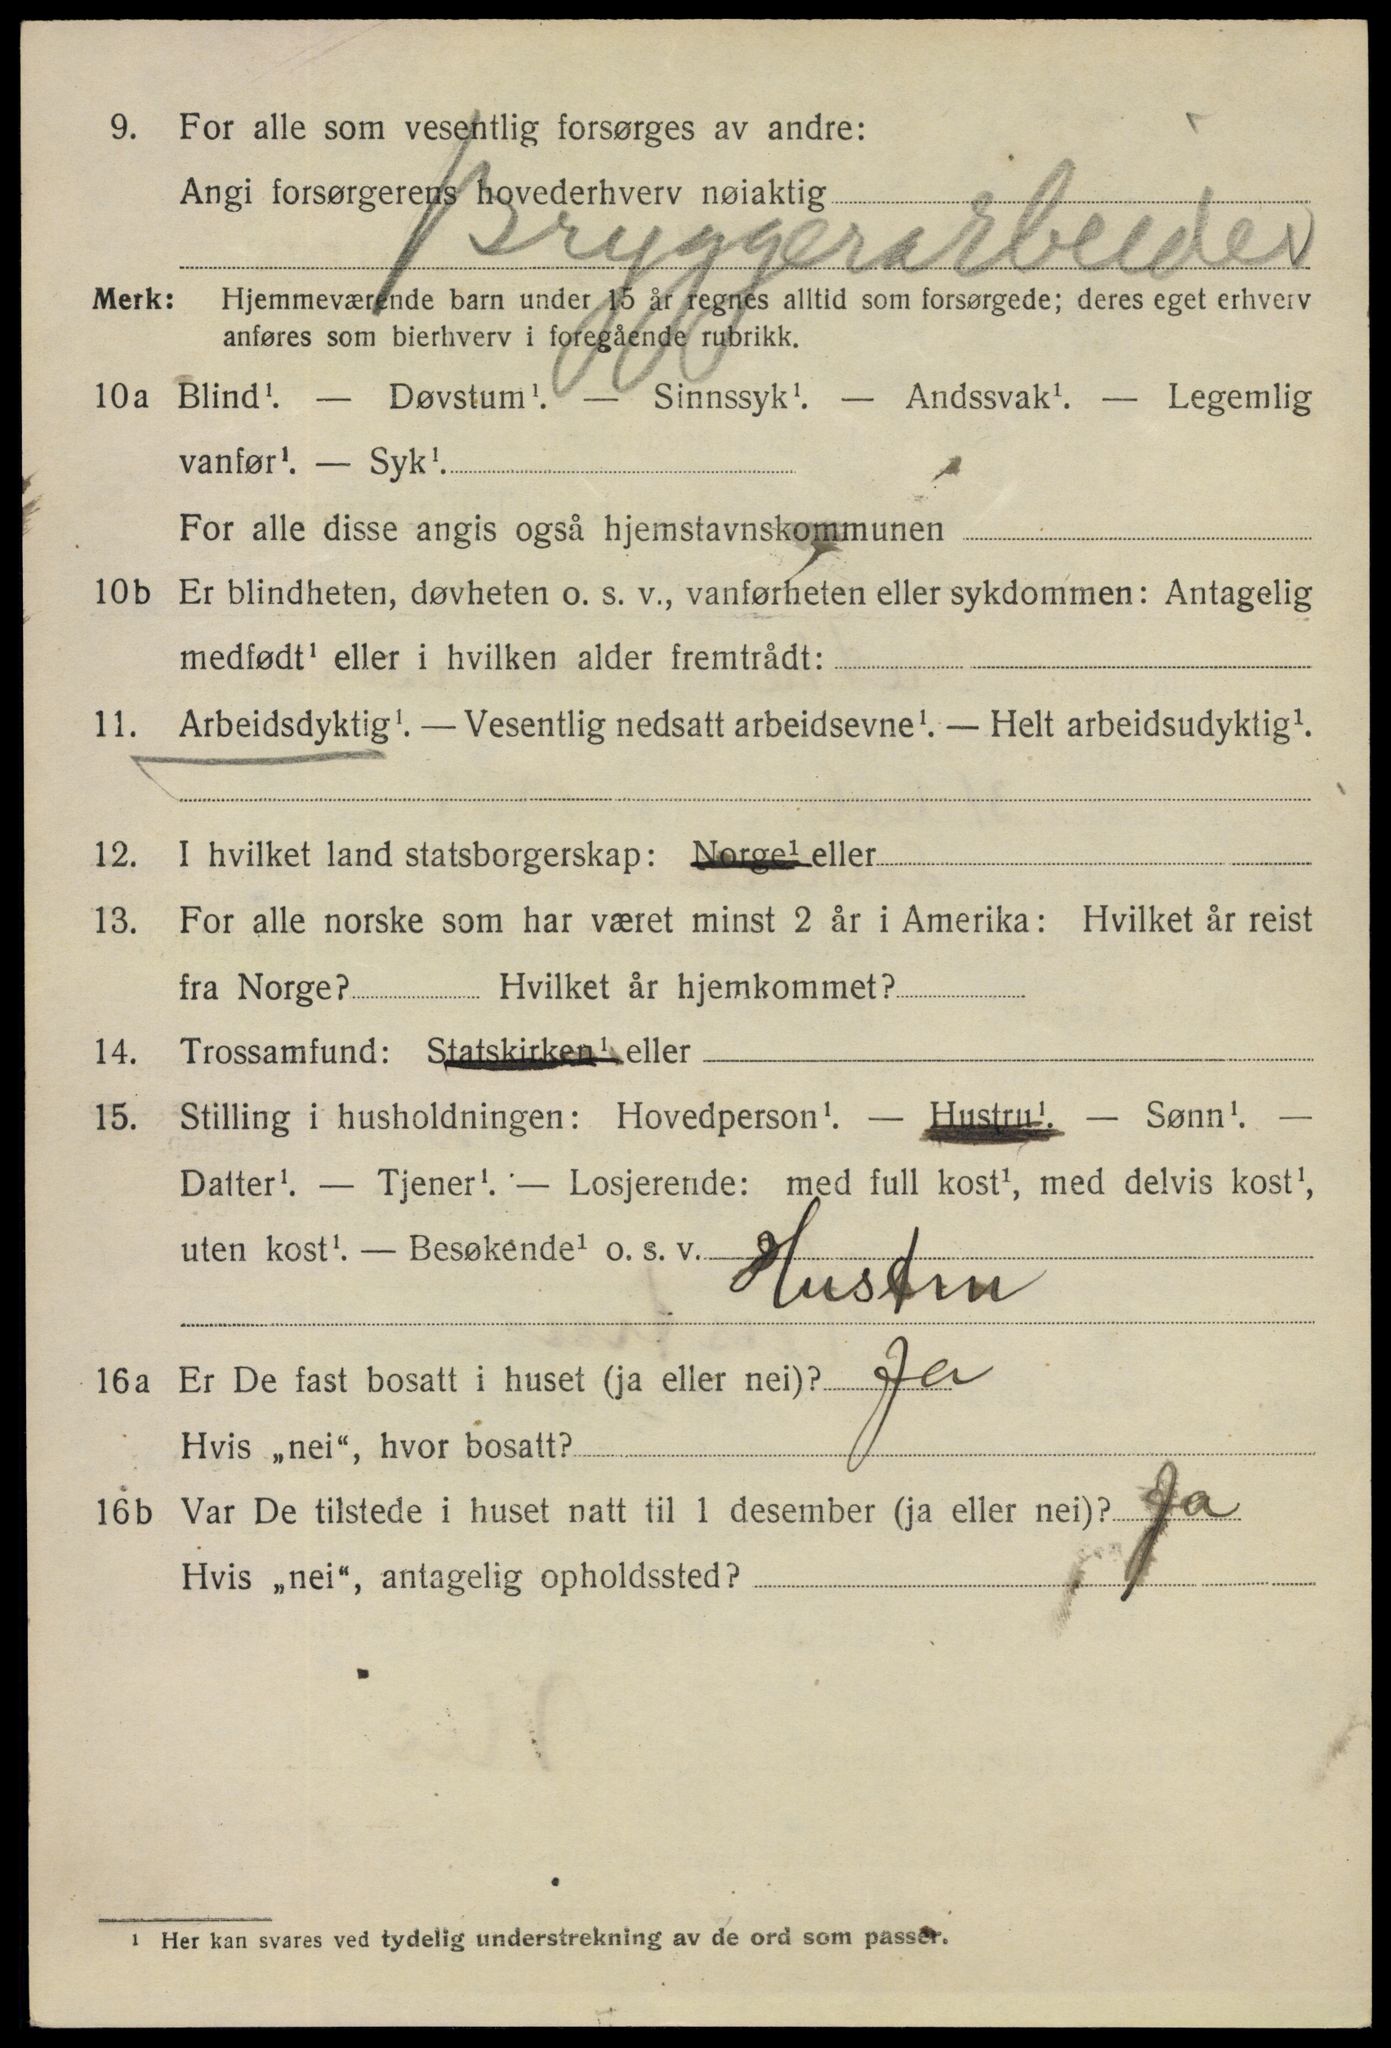 9. For alle som vesentlig forsørges av andre:
Angi forsørgerens hovederhverv nøiaktig
Bryggerarbeider
Merk: Hjemmeværende barn under 15 år regnes alltid som forsørgede; deres eget erhverv
anføres som bierhverv i foregående rubrikk.
10a Blind¹. — Døvstum¹. — Sinnssyk¹. — Andssvak¹. — Legemlig
vanfør¹. — Syk¹.
For alle disse angis også hjemstavnskommunen
10b Er blindheten, døvheten o. s. v., vanførheten eller sykdommen: Antagelig
medfødt¹ eller i hvilken alder fremtrådt:
11. Arbeidsdyktig¹. — Vesentlig nedsatt arbeidsevne¹. — Helt arbeidsudyktig¹.
12. I hvilket land statsborgerskap: Norge¹ eller
13. For alle norske som har været minst 2 år i Amerika: Hvilket år reist
fra Norge? Hvilket år hjemkommet?
14. Trossamfund: Statskirken¹ eller
15. Stilling i husholdningen: Hovedperson¹. — Hustru¹. — Sønn¹. —
Datter¹. — Tjener¹. — Losjerende: med full kost¹, med delvis kost¹,
uten kost¹. — Besøkende¹ o. s. v.
Hustru
16a Er De fast bosatt i huset (ja eller nei)? Ja
Hvis „nei“, hvor bosatt?
16b Var De tilstede i huset natt til 1 desember (ja eller nei)? Ja
Hvis „nei“, antagelig opholdssted?
¹ Her kan svares ved tydelig understrekning av de ord som passer.